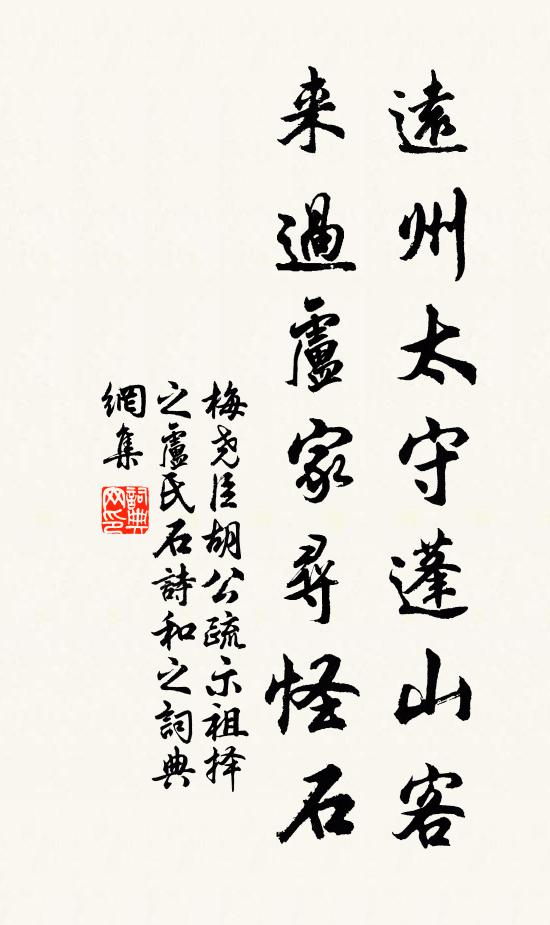 遠州太守蓬山客
来過盧家尋怪石
梅尧臣胡公疏示祖择
之盧氏石詩和之詞典
網集
詞典
网印